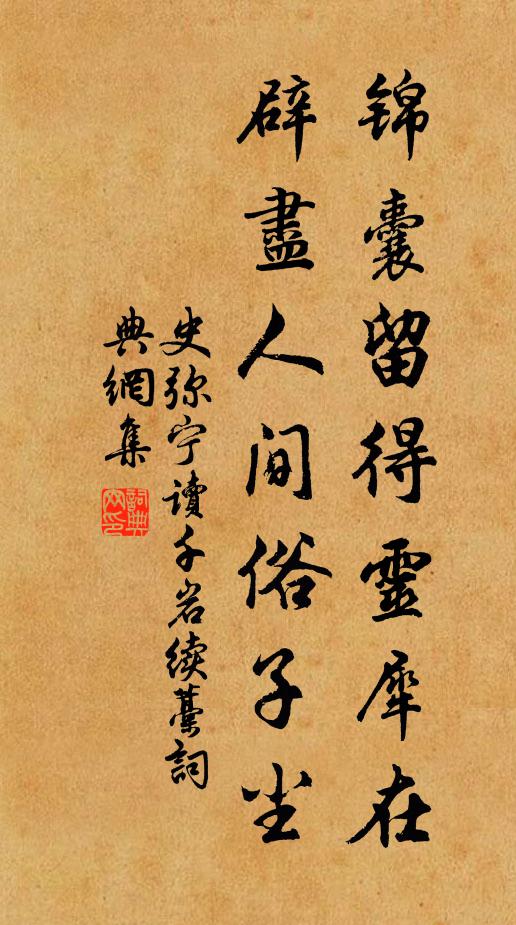 锦囊留得靈犀在
辟盡人间俗子尘
史弥宁读千岩续藁詞
典網集
詞典网印